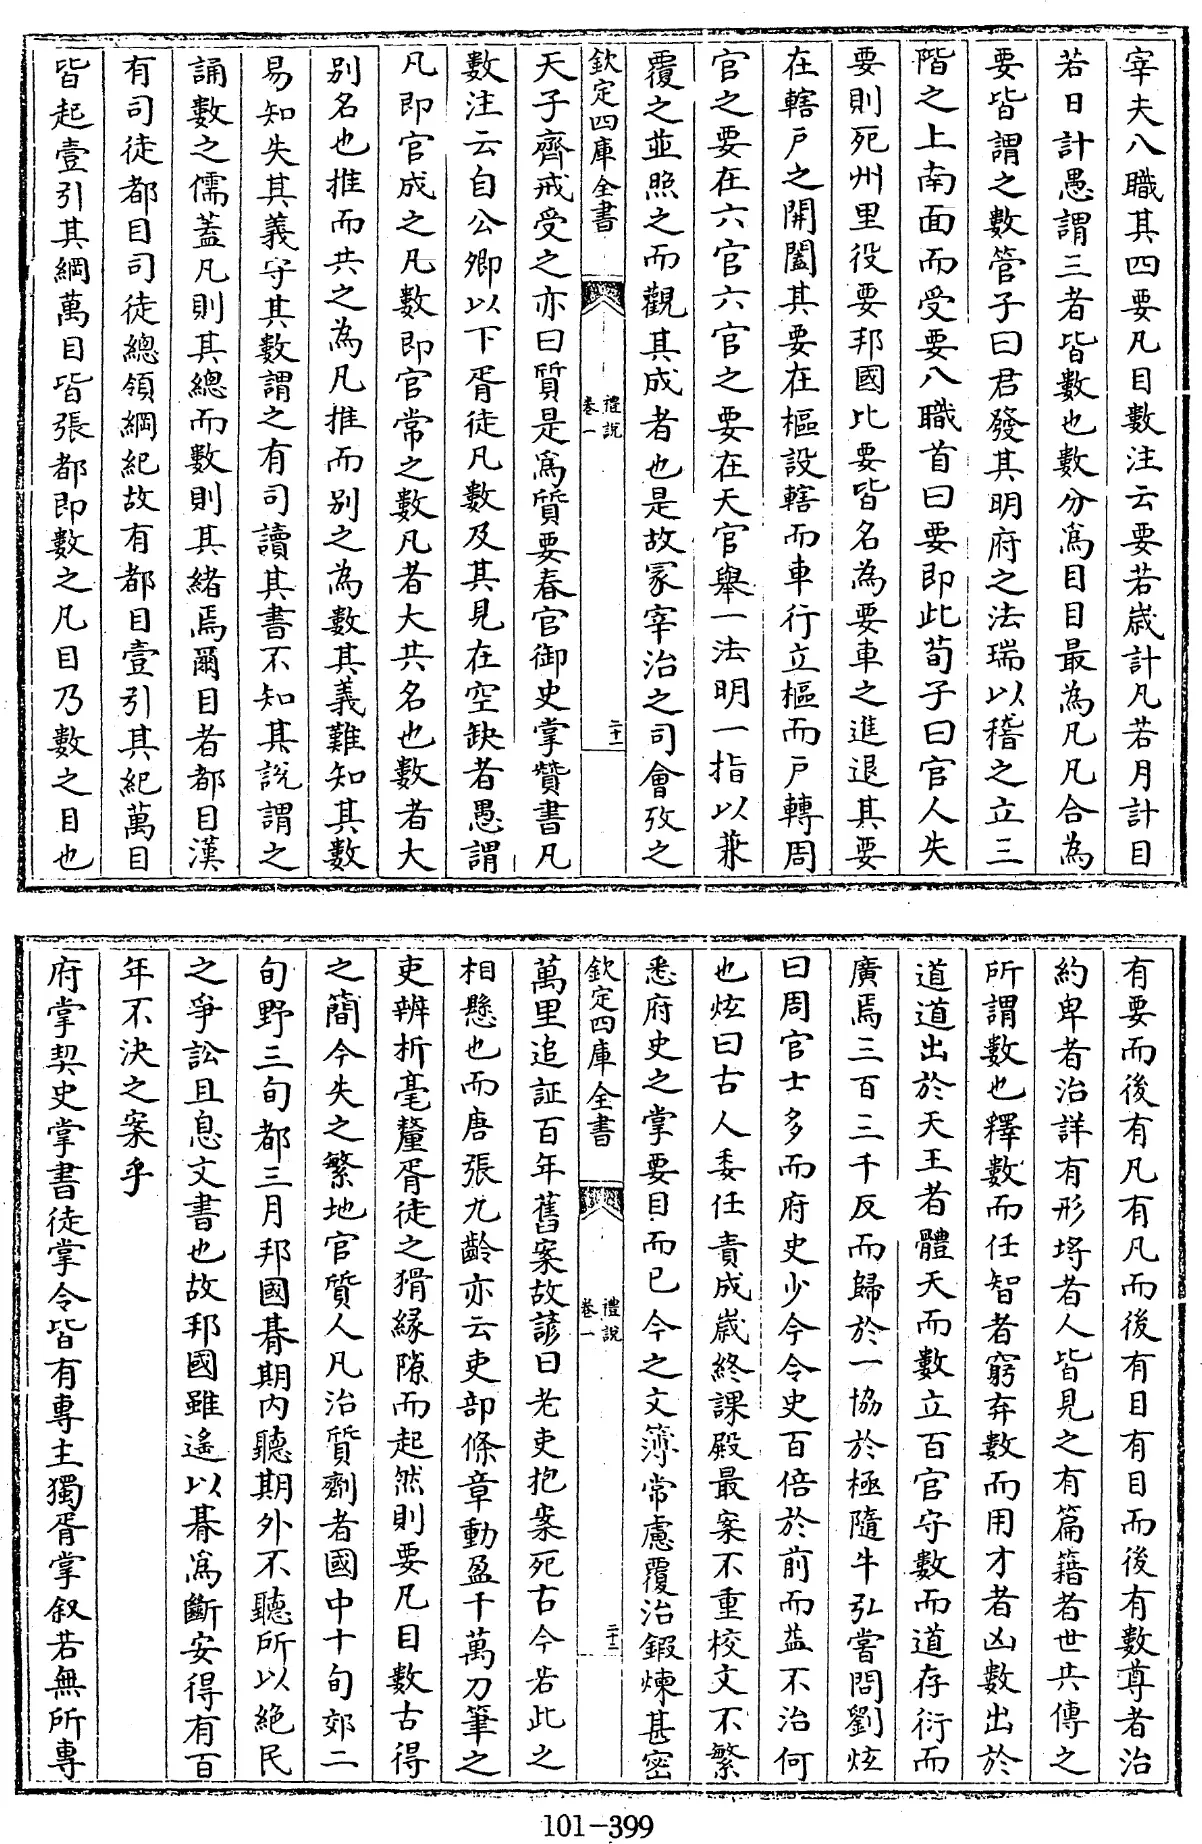 宰夫八職其四要凡目數注云要若歲計凡若月計目
若日計愚謂三者皆數也數分為目目最為凡凡合為
要皆謂之數管子曰君發其明府之法瑞以稽之立三
階之上南面而受要八職首曰要即此荀子曰官人失
要則死州里役要邦國比要皆名為要車之進退其要
在轄戶之開闔其要在樞設轄而車行立樞而戶轉周
官之要在六官六官之要在天官舉一法明一指以兼
覆之並照之而觀其成者也是故冢宰治之司會攷之
欽定四庫全書
禮說
卷一
二十一
天子齊戒受之亦曰質是為質要春官御史掌贊書凡
數注云自公卿以下胥徒凡數及其見在空缺者愚謂
凡即官成之凡數即官常之數凡者大共名也數者大
別名也推而共之為凡推而別之為數其義難知其數
易知失其義守其數謂之有司讀其書不知其說謂之
誦數之儒蓋凡則其總而數則其緒焉爾目者都目漢
有司徒都目司徒總領綱紀故有都目壹引其紀萬目
皆起壹引其綱萬目皆張都即數之凡目乃數之目也
有要而後有凡有凡而後有目有目而後有數尊者治
約卑者治詳有形埒者人皆見之有篇籍者世共傳之
所謂數也釋數而任智者窮弃數而用才者凶數出於
道道出於天王者體天而數立百官守數而道存衍而
廣焉三百三千反而歸於一協於極隨牛弘嘗問劉炫
曰周官士多而府史少今令史百倍於前而益不治何
也炫曰古人委任責成歲終課殿最案不重校文不繁
悉府史之掌要目而已今之文簿常慮覆治鍛煉甚密
欽定四庫全書
禮說
卷一
二十二
萬里追証百年舊案故諺曰老吏抱案死古今若此之
相懸也而唐張九齡亦云吏部條章動盈千萬刀筆之
吏辨析毫釐胥徒之猾緣隙而起然則要凡目數古得
之簡今失之繁地官質人凡治質劑者國中十旬郊二
旬野三旬都三月邦國朞期內聽期外不聽所以絶民
之爭訟且息文書也故邦國雖遙以朞為斷安得有百
年不決之案乎
府掌契史掌書徒掌令皆有專主獨胥掌叙若無所專
101-399